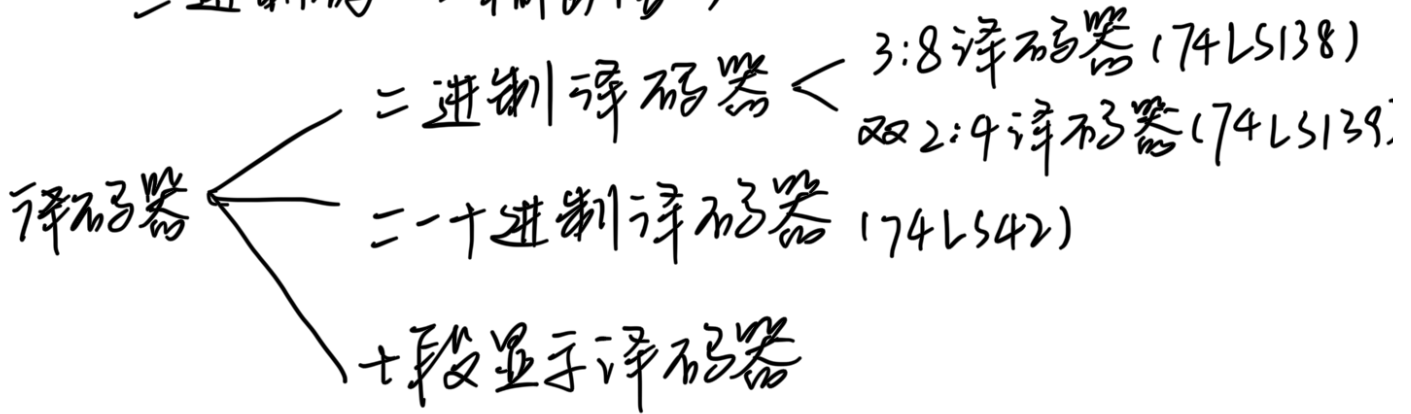 二进制译码器 < 3:8译码器(74LS138)
双2:4译码器(74LS139)
译码器
二-十进制译码器(74LS42)
七段显示译码器